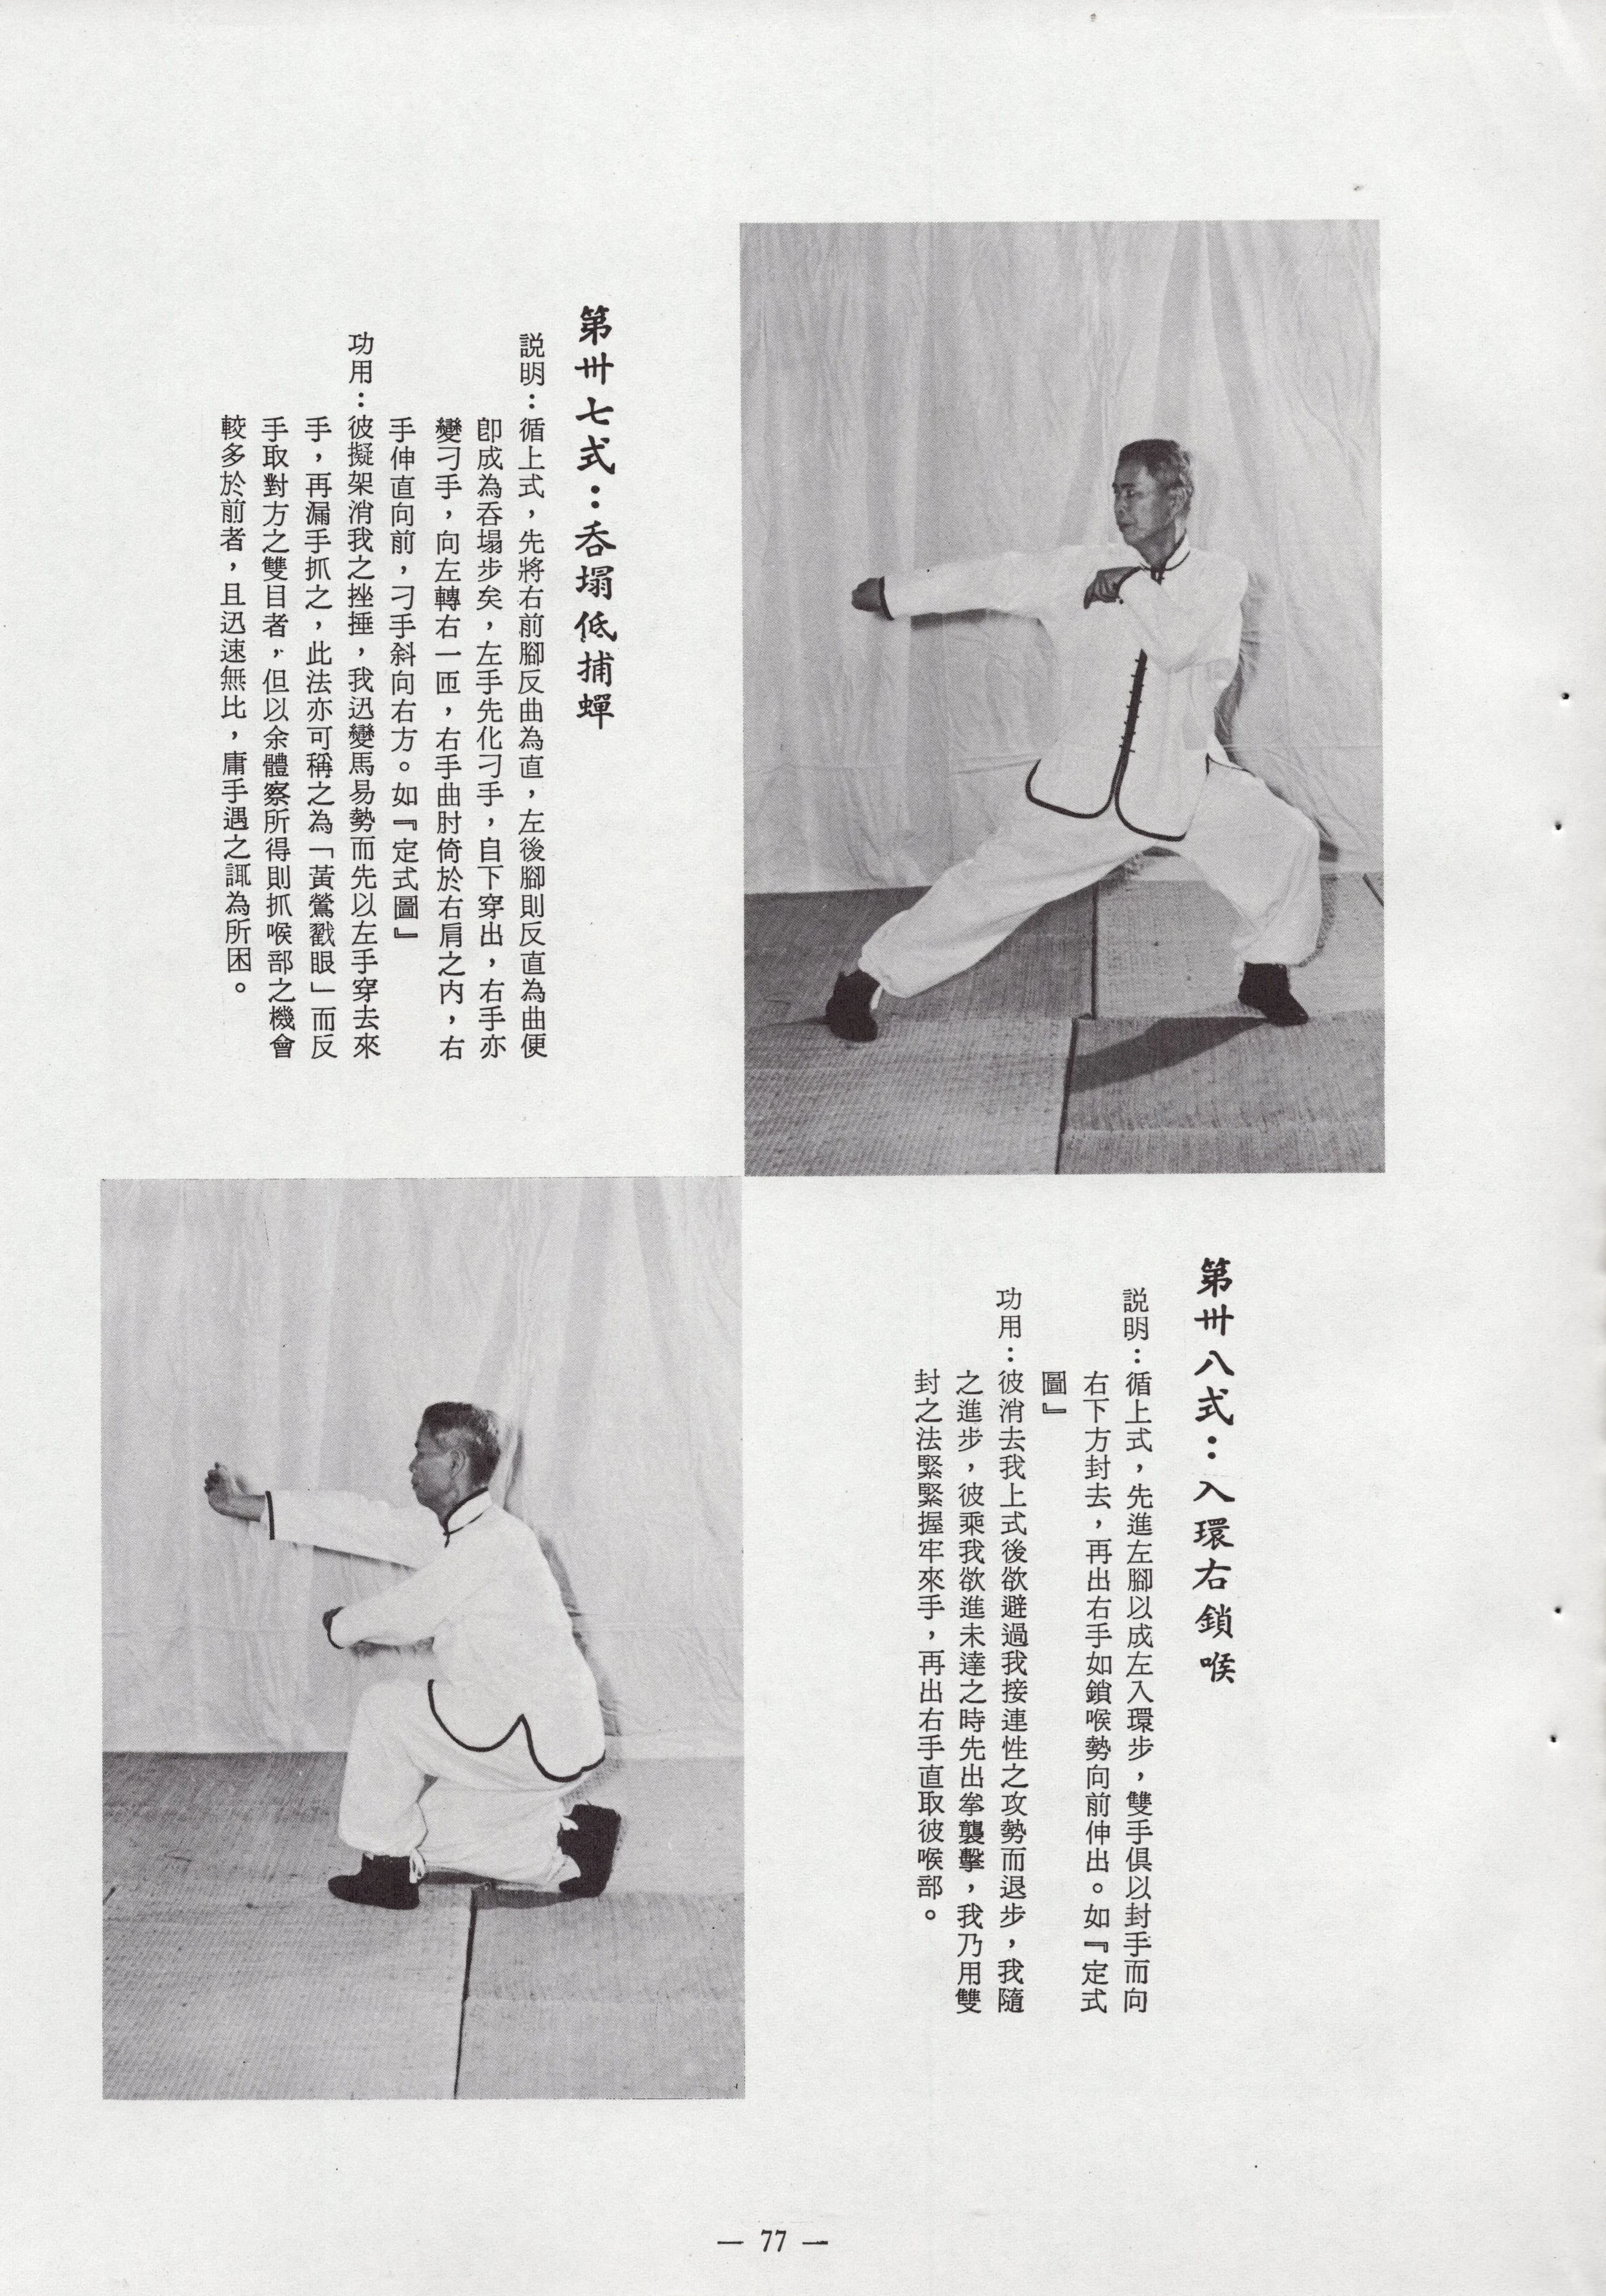 第卅七式：呑塌低捕蟬
説明：循上式，先將右前腳反曲為直，左後腳則反直為曲便
卽成為呑塌步矣，左手先化刁手，自下穿出，右手亦
變刁手，向左轉右一匝，右手曲肘倚於右肩之内，右
手伸直向前，刁手斜向右方。如『定式圖』
功用：彼擬架消我之挫捶，我迅變馬易勢而先以左手穿去來
手，再漏手抓之，此法亦可稱之為「黃鶯戳眼」而反
手取對方之雙目者，但以余體察所得則抓喉部之機會
較多於前者，且迅速無比，庸手遇之諏為所困。
第卅八式：入環右鎖喉
説明：循上式，先進左腳以成左入環步，雙手俱以封手而向
右下方封去，再出右手如鎖喉勢向前伸出。如『定式
圖』
功用：彼消去我上式後欲避過我接連性之攻勢而退步，我隨
之進步，彼乘我欲進未達之時先出拳襲擊，我乃用雙
封之法緊緊握牢來手，再出右手直取彼喉部。
— 77 —